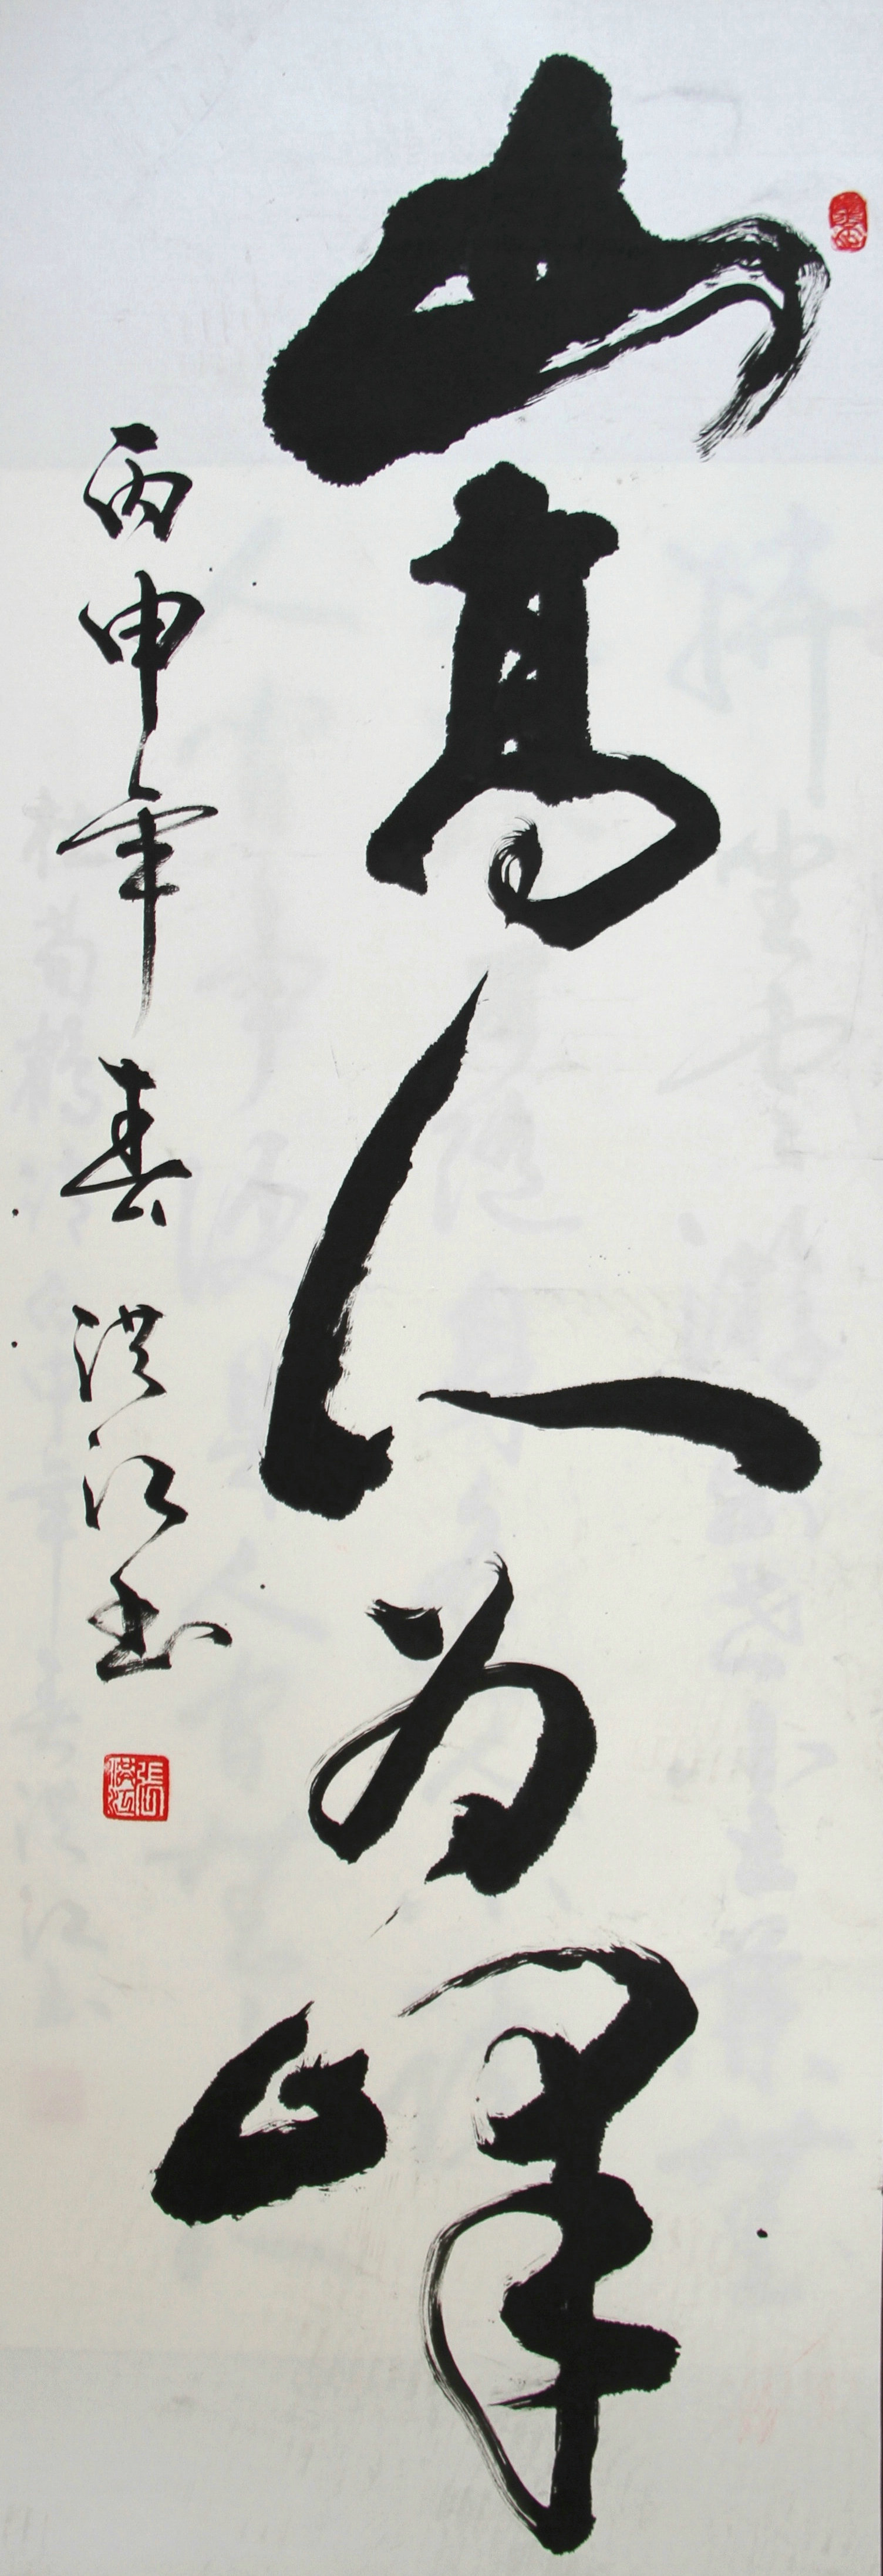 山高人为峰
丙申年春 洪江书